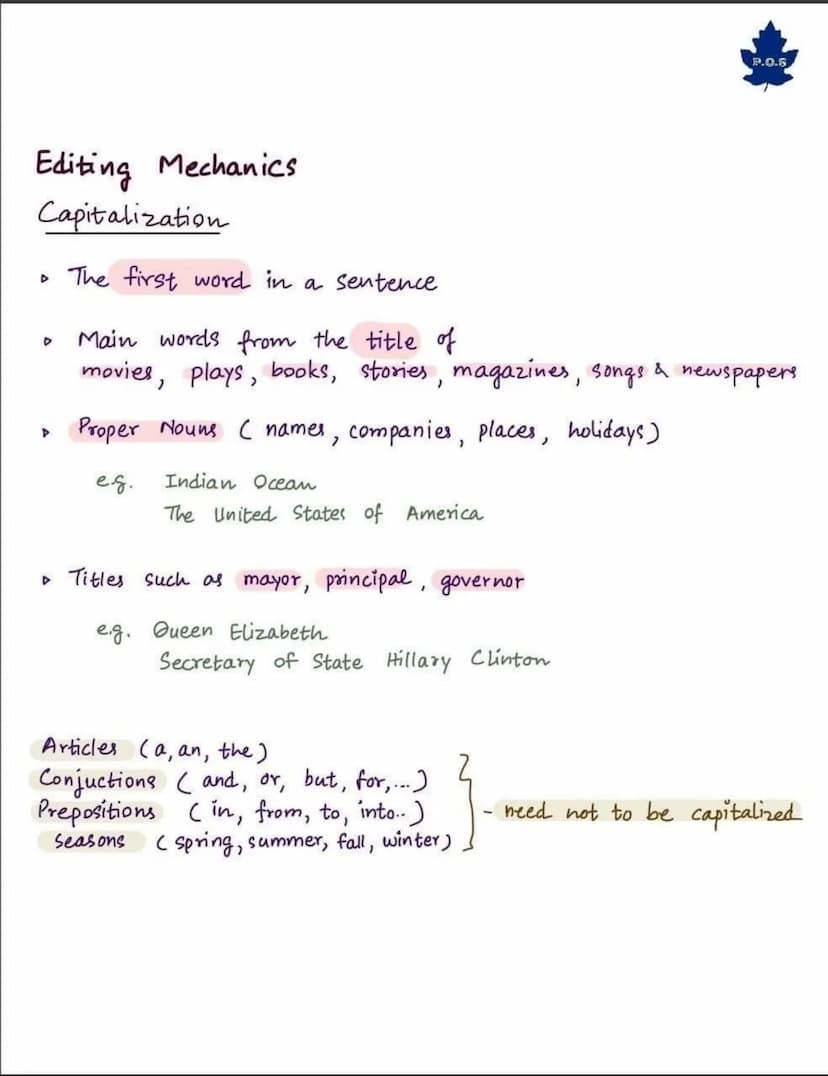 P.O.S
Editing Mechanics
Capitalization
▹ The first word in a sentence
▹ Main words from the title of
movies, plays, books, stories, magazines, songs & newspapers
▹ Proper Nouns ( names, companies, places, holidays)
e.g. Indian Ocean
The United States of America
▹ Titles such as mayor, principal, governor
e.g. Queen Elizabeth
Secretary of State Hillary Clinton
Articles (a, an, the)
Conjuctions ( and, or, but, for,...)
Prepositions ( in, from, to, into..)
Seasons ( spring, summer, fall, winter)
- need not to be capitalized